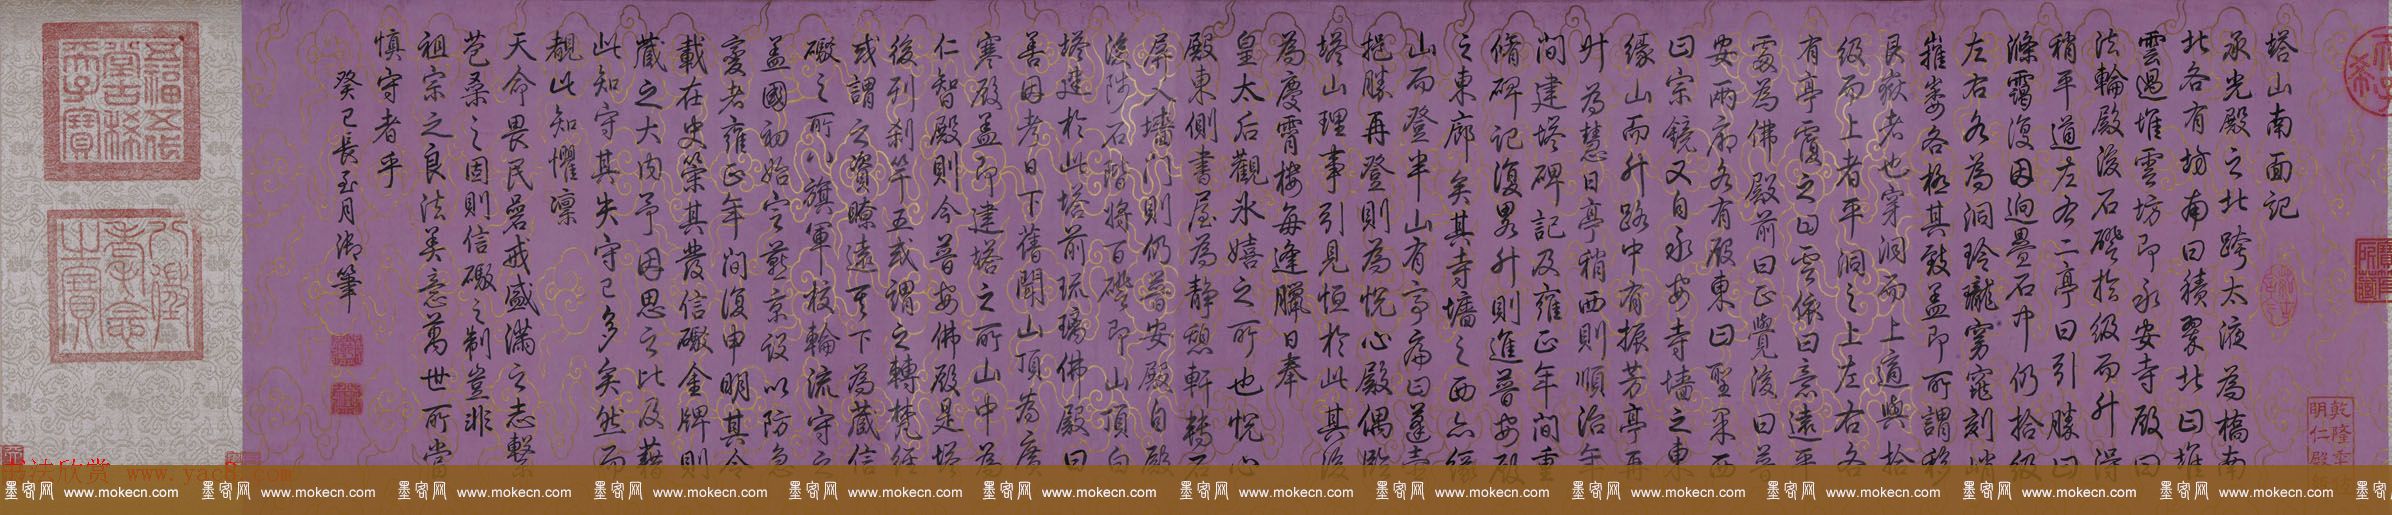 塔山南面記
承光殿之北跨太液為橋南
北各有坊南曰積翠北曰堆
雲過堆雲坊即永安寺殿曰
法輪殿後石磴拾級而升得
稍平道左右二亭曰引勝曰
滌靄復因迴疊石中仍拾級
左右各為洞玲瓏窈窕刻峭
摧崣各極其致蓋即所謂移
艮嶽者也穿洞而上適與拾
級而上者平洞之上左右各
有亭覆之曰雲依曰意遠平
處為佛殿前曰正覺後曰普
安兩廊各有殿東曰聖果西
曰宗鏡又自永安寺墻之東
緣山而升路中有振芳亭再
升為慧日亭稍西則順治年
間建塔碑記及雍正年間重
脩碑記復略升則進普安殿
之東廊矣其寺墻之西亦緣
山而登半山有亭扁曰蓬壺
挹勝再登則為悅心殿偶臨
塔山理事引見恒於此其後
為慶霄樓每逢臘日奉
皇太后觀冰嬉之所也悅心
殿東側書屋為靜憩軒轉石
屏入墻門則仍普安殿自殿
後陟石階將百磴即山頂白
塔建於此塔前琉璃佛殿曰
善因考日下舊聞山頂為廣
寒殿蓋即建塔之所山中為
仁智殿則今普安佛殿是塔
後列剎竿五或謂之轉梵經
或謂之資瞭遠其下為藏信
礮之所八旗軍校輪流守之
蓋國初始定燕京設以防急
變者雍正年間復申明其令
載在史策其發信礮金牌則
藏之大內予因思之比及藉
此知守其失守已多矣然而
覩此知懼凜
天命畏民碞戒盛滿之志繫
苞桑之固則信礮之制豈非
祖宗之良法美意萬世所當
慎守者乎
癸巳長至月御筆
五福五代堂古稀天子寶
八徵耄念之寶
墨客网 www.mokecn.com 墨客网 www.mokecn.com 墨客网 www.mokecn.com 墨客网 www.mokecn.com 墨客网 www.mokecn.com 墨客网 www.mokecn.com 墨客网 www.mokecn.com 墨客网 www.mokecn.com 墨客网 www.mokecn.com 墨客网 www.mokecn.com 墨客网 www.mokecn.com 墨客网 www.mokecn.com 墨客网